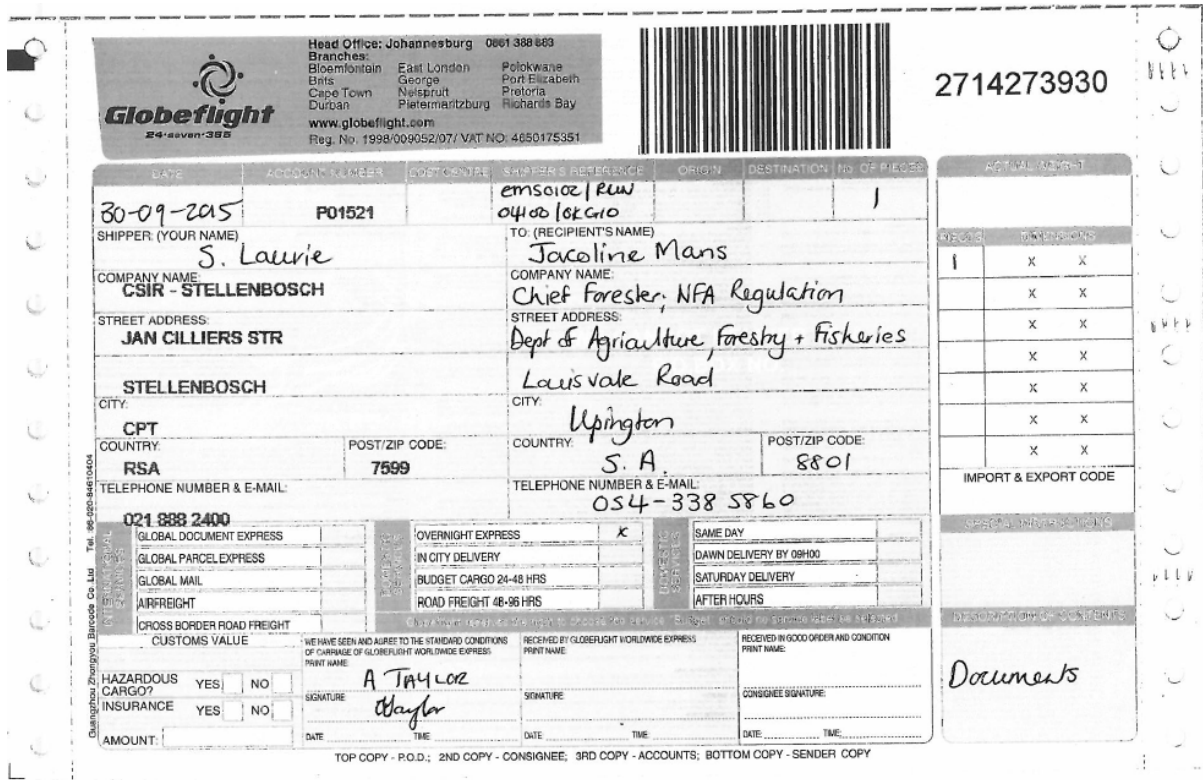 Head Office: Johannesburg 0861 388 883
Branches:
Bloemfontein East London Polokwane
Brits George Port Elizabeth
Cape Town Nelspruit Pretoria
Durban Pietermaritzburg Richards Bay
www.globeflight.com
Reg. No. 1998/009052/07/ VAT NO: 4650175351
Globeflight
24-seven-365
2714273930
DATE ACCOUNT NUMBER COST CENTRE SHIPPER'S REFERENCE ORIGIN DESTINATION No. OF PIECES
30-09-2015 P01521 1
ACTUAL WEIGHT
SHIPPER: (YOUR NAME)
S. Laurie
COMPANY NAME:
CSIR - STELLENBOSCH
STREET ADDRESS:
JAN CILLIERS STR
STELLENBOSCH
CITY:
CPT
COUNTRY: POST/ZIP CODE:
RSA 7599
TELEPHONE NUMBER & E-MAIL:
021 888 2400
TO: (RECIPIENT'S NAME)
Jacoline Mans
COMPANY NAME:
Chief Forester; NFA Regulation
STREET ADDRESS:
Dept of Agriculture, Forestry + Fisheries
Louisvale Road
CITY:
Upington
COUNTRY: POST/ZIP CODE:
S.A. 8801
TELEPHONE NUMBER & E-MAIL:
054-338 5860
PIECES DIMENSIONS
1 X X
X X
X X
X X
X X
X X
X X
IMPORT & EXPORT CODE
SPECIAL INSTRUCTIONS
GLOBAL DOCUMENT EXPRESS
GLOBAL PARCEL EXPRESS
GLOBAL MAIL
AIRFREIGHT
CROSS BORDER ROAD FREIGHT
OVERNIGHT EXPRESS X
IN CITY DELIVERY
BUDGET CARGO 24-48 HRS
ROAD FREIGHT 48-96 HRS
SAME DAY
DAWN DELIVERY BY 09H00
SATURDAY DELIVERY
AFTER HOURS
CUSTOMS VALUE
HAZARDOUS CARGO? YES NO
INSURANCE YES NO
AMOUNT:
WE HAVE SEEN AND AGREE TO THE STANDARD CONDITIONS
OF CARRIAGE OF GLOBEFLIGHT WORLDWIDE EXPRESS
PRINT NAME:
A TAYLOR
SIGNATURE
ATaylor
DATE TIME
RECEIVED BY GLOBEFLIGHT WORLDWIDE EXPRESS
PRINT NAME:
SIGNATURE
DATE: TIME:
RECEIVED IN GOOD ORDER AND CONDITION
PRINT NAME:
CONSIGNEE SIGNATURE:
DATE: TIME:
DESCRIPTION OF CONTENTS
Documents
TOP COPY - P.O.D.; 2ND COPY - CONSIGNEE; 3RD COPY - ACCOUNTS; BOTTOM COPY - SENDER COPY
Guangzhou Zhongyou Barcode Co. Ltd Tel. 86-020-84610404